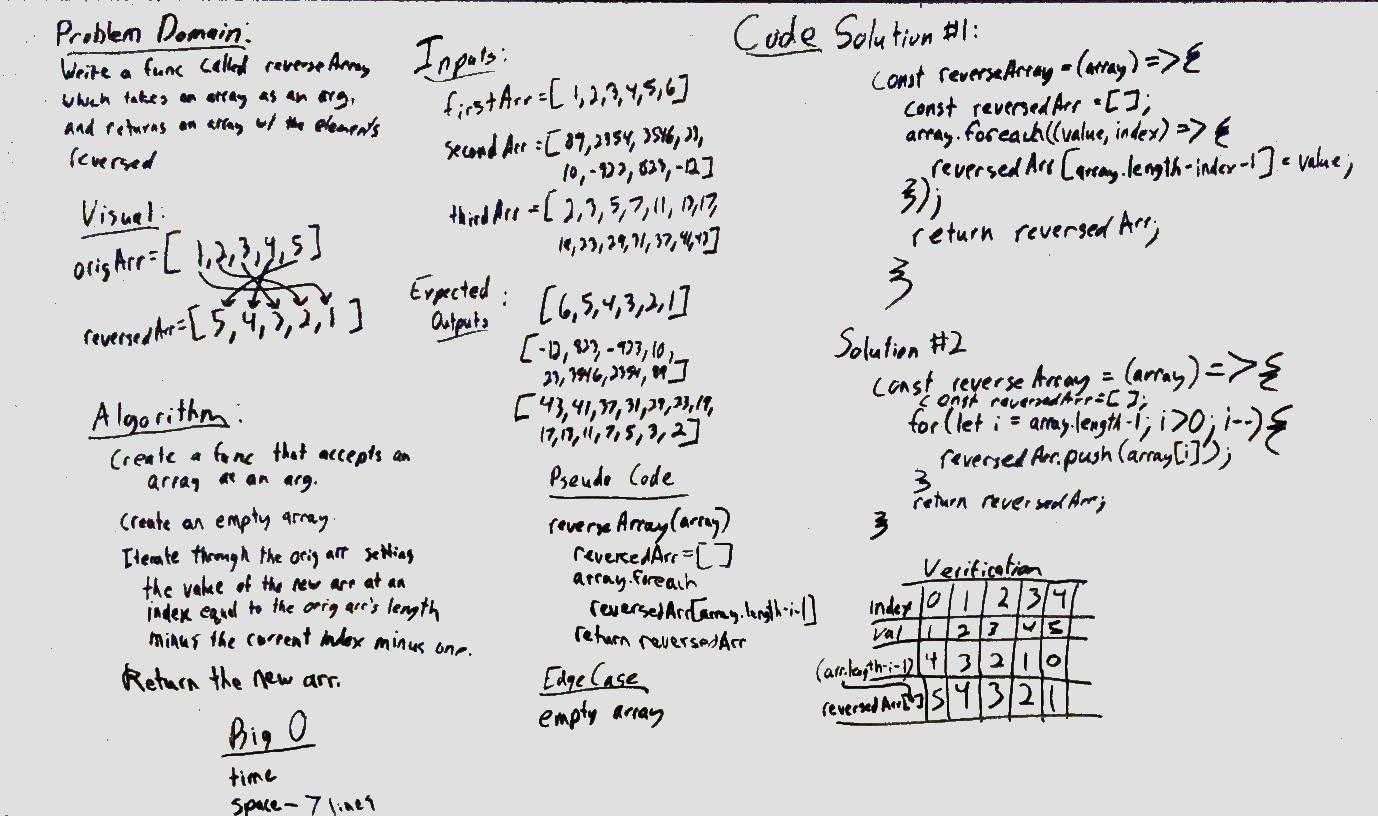 Problem Domain:
Write a func called reverseArray
which takes an array as an arg,
and returns an array w/ the elements
reversed
Visual:
origArr=[ 1,2,3,4,5]
reversedArr=[5,4,3,2,1 ]
Algorithm:
Create a func that accepts an
array as an arg.
Create an empty array.
Iterate through the orig arr setting
the value of the new arr at an
index equal to the orig arr's length
minus the current index minus one.
Return the new arr.
Big O
time
space- 7 lines
Inputs:
firstArr=[ 1,2,3,4,5,6]
secondArr=[89,2354, 3546, 23,
10, -923, 823, -12]
thirdArr=[ 2,3,5,7,11, 13,17,
19,23,29,31,37,41,43]
Expected
Outputs :
[6,5,4,3,2,1]
[-12, 823, -923,10,
23, 3546, 2354, 89]
[43,41,37,31,29,23,19,
17,13,11,7,5,3,2]
Pseudo Code
reverseArray(array)
reversedArr=[ ]
array.foreach
reversedArr[array.length-i-1]
return reversedArr
Edge Case
empty array
Code Solution #1:
const reverseArray=(array)=>{
const reversedArr=[];
array.foreach((value, index)=>{
reversedArr[array.length-index-1]=value;
});
return reversedArr;
}
Solution #2
const reverseArray = (array)=>{
const reversedArr=[ ];
for(let i = array.length-1; i>0; i--){
reversedArr.push(array[i]);
}
return reversedArr;
}
Verification
index 0 1 2 3 4
val 1 2 3 4 5
(arr.length-i-1) 4 3 2 1 0
reversedArr[] 5 4 3 2 1